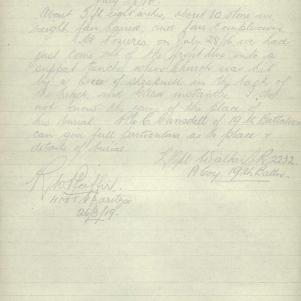 About 5 ft eight inches, about 10 stone in
weight, fair haired, and fair complexion.
At Pozieres, on July 28/16 we had
just come out of the front line into a
support trench, when Church was hit
by a piece of shrapnel in the back of
the neck and killed instantly. I did
not know the name of the place of
his burial. Pte C. Cansdell of 19th Battalion
can give full particulars as to place &
details of burial.
L/Cpl Walker J R 2232
A Coy, 19th Battn.